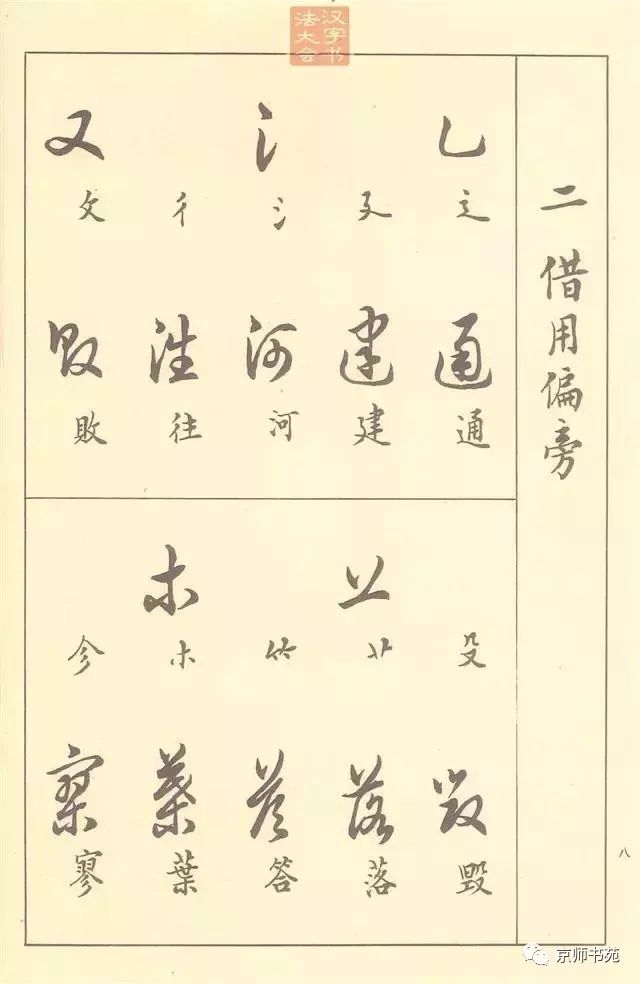 汉字书法大会
二 借用偏旁
乙 讠 又
辶 廴 氵 彳 攵
通 建 河 往 败
通 建 河 往 敗
䒑 木
殳 艹 竹 木 㐱
毁 落 答 葉 寥
毁 落 答 葉 寥
八
京师书苑